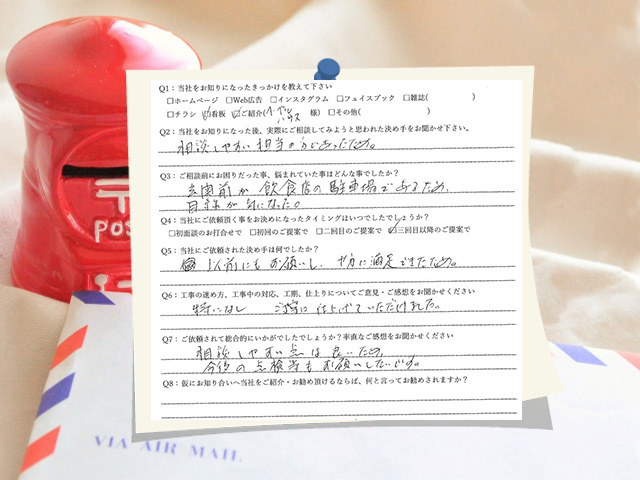 Q1：当社をお知りになったきっかけを教えて下さい
□ホームページ □Web広告 □インスタグラム □フェイスブック □雑誌( )
□チラシ ☑看板 ☑ご紹介( ハウス 様) □その他( )
Q2：当社をお知りになった後、実際にご相談してみようと思われた決め手をお聞かせ下さい。
相談しやすい担当の方であったため。
Q3：ご相談前にお困りだった事、悩まれていた事はどんな事でしたか？
玄関前が飲食店の駐車場であるため、
目線が気になった。
Q4：当社にご依頼頂く事をお決めになったタイミングはいつでしたでしょうか？
□初面談のお打合せで □初回のご提案で □二回目のご提案で ☑三回目以降のご提案で
Q5：当社にご依頼された決め手は何でしたか？
以前にもお願いし、 満足できたため。
Q6：工事の進め方、工事中の対応、工期、仕上りについてご意見・ご感想をお聞かせください
特になし 丁寧に仕上げていただけました。
Q7：ご依頼されて総合的にいかがでしたでしょうか？率直なご感想をお聞かせください
相談しやすい点は良いため、
今後の点検等もお願いしたいです。
Q8：仮にお知り合いへ当社をご紹介・お勧め頂けるならば、何と言ってお勧めされますか？
POS
VIA AIR MAIL